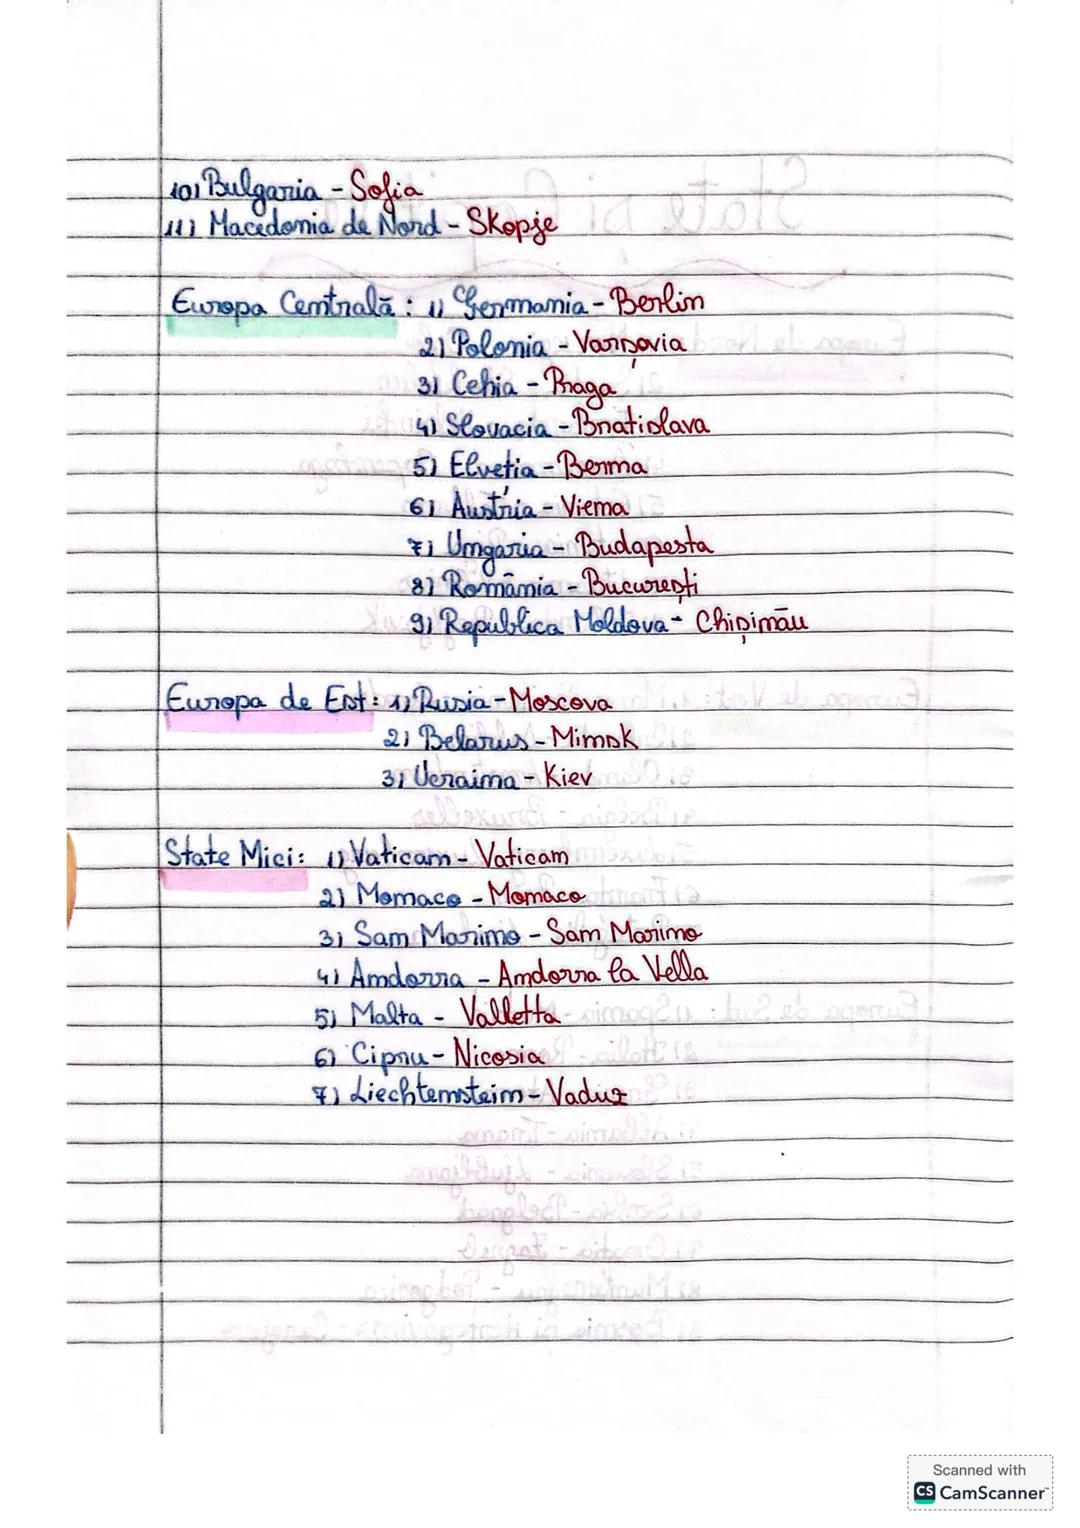 10) Bulgaria - Sofia
11) Macedonia de Nord - Skopje
Europa Centrală : 1) Germania - Berlin
2) Polonia - Varșovia
3) Cehia - Praga
4) Slovacia - Bratislava
5) Elveția - Berna
6) Austria - Viena
7) Ungaria - Budapesta
8) România - București
9) Republica Moldova - Chișinău
Europa de Est : 1) Rusia - Moscova
2) Belarus - Minsk
3) Ucraina - Kiev
State Mici : 1) Vatican - Vatican
2) Monaco - Monaco
3) San Marino - San Marino
4) Andorra - Andorra la Vella
5) Malta - Valletta
6) Cipru - Nicosia
7) Liechtenstein - Vaduz
Scanned with
CS CamScanner